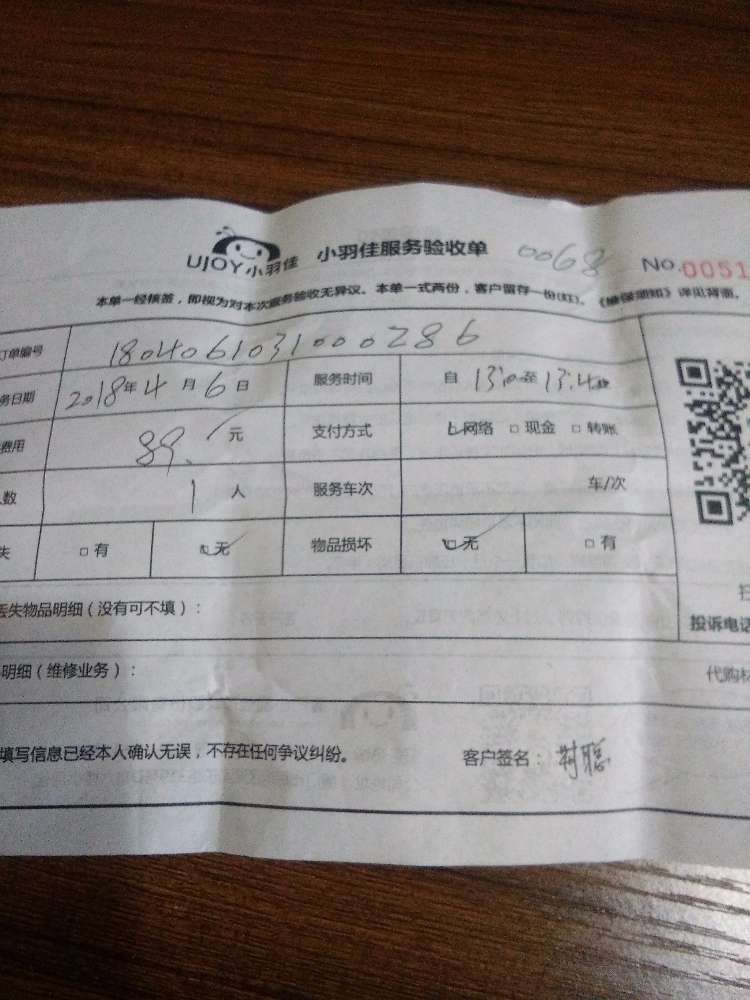 UJOY小羽佳 小羽佳服务验收单 0068 No.0051
本单一经核签，即视为对本次服务验收无异议。本单一式两份，客户留存一份(红)。《维保须知》详见背面。
订单编号 1804061031000286
务日期 2018年4月6日 服务时间 自 13:10至13:40
费用 89.元 支付方式 网络 □ 现金 □ 转账
人数 1人 服务车次 车/次
失 □ 有 □ 无 物品损坏 □ 无 □ 有
丢失物品明细（没有可不填）：
投诉电话
明细（维修业务）： 代购材
填写信息已经本人确认无误，不存在任何争议纠纷。 客户签名：